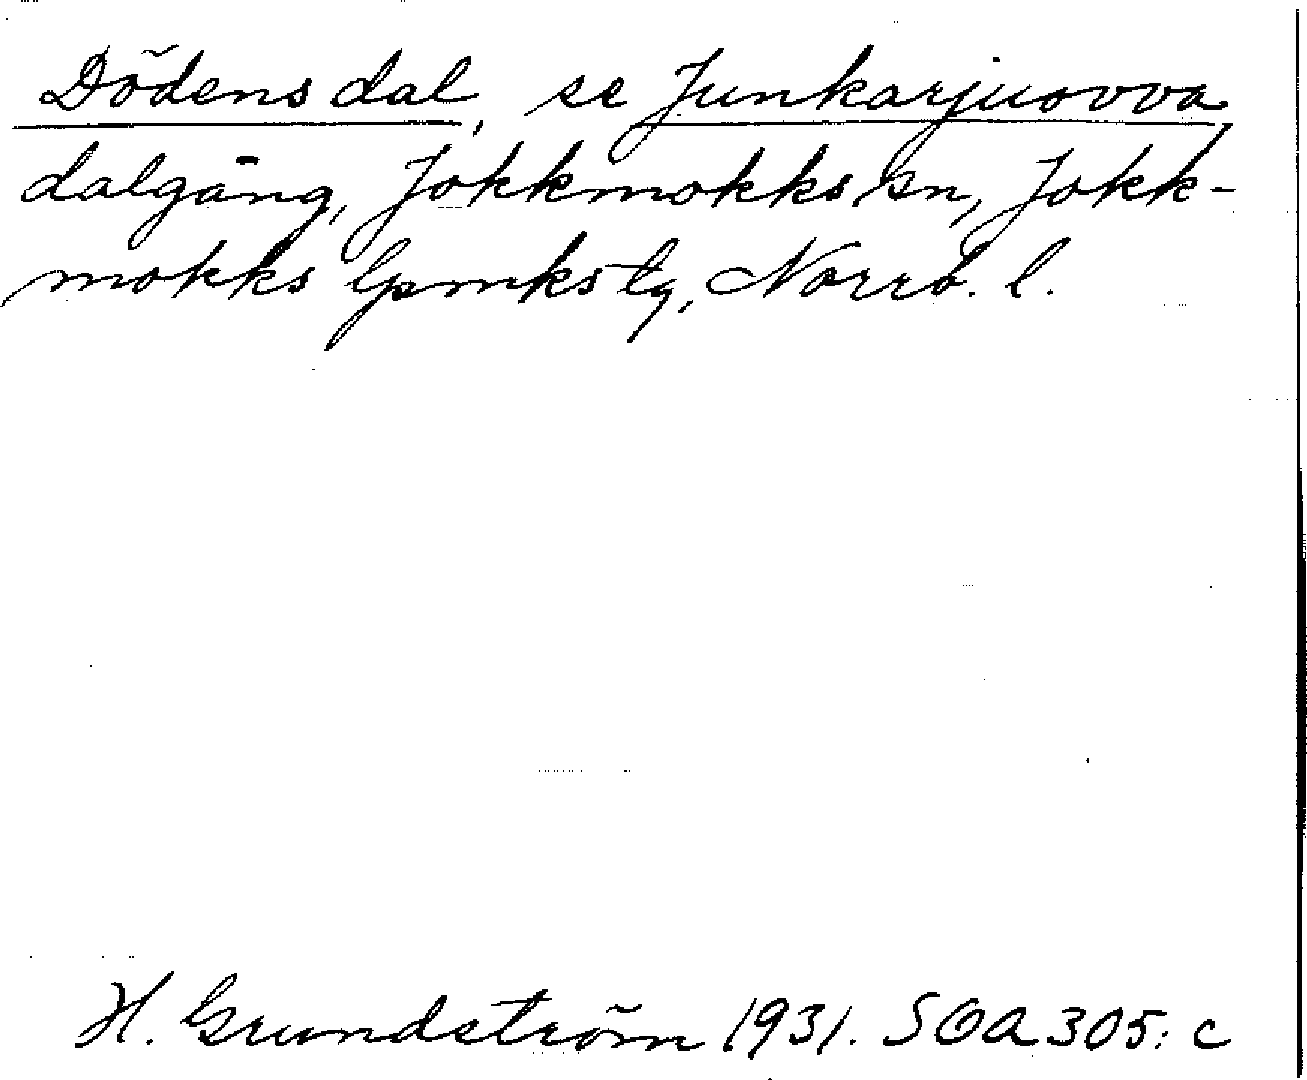 Dödens dal, se Junkarjuovva,
dalgång, Jokkmokks sn, Jokk-
mokks lpmks tg, Norrb. l.
H. Grundström 1931. SOA 305: c